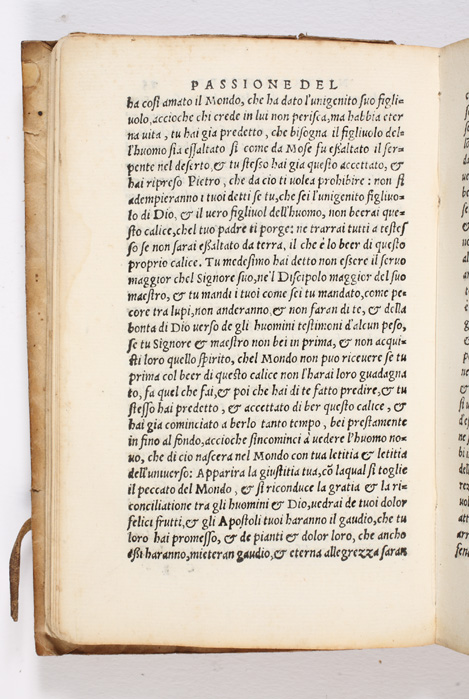 PASSIONE DEL
ha così amato il Mondo, che ha dato l'unigenito suo figli=
uolo, accioche chi crede in lui non perisca, ma habbia eter
na vita, tu hai gia predetto, che bisogna il figliuolo del=
l'huomo sia essaltato sì come da Mose fu essaltato il ser=
pente nel deserto, & tu stesso hai gia questo accettato, &
hai ripreso Pietro, che da cio ti uolea prohibire: non si
adempieranno i tuoi detti se tu, che sei l'unigenito figliuo=
lo di Dio, & il uero figliuol dell'huomo, non beerai que=
sto calice, chel tuo padre ti porge: ne trarrai tutti a testes
so se non sarai essaltato da terra, il che è lo beer di questo
proprio calice. Tu medesimo hai detto non essere il seruo
maggior chel Signore suo, ne'l Discipolo maggior del suo
maestro, & tu mandi i tuoi come sei tu mandato, come pe=
core tra lupi, non anderanno, & non faran di te, & della
bonta di Dio uerso de gli huomini testimoni d'alcun peso,
se tu Signore & maestro non bei in prima, & non acqui=
sti loro quello spirito, chel Mondo non puo riceuere se tu
prima col beer di questo calice non l'harai loro guadagna
to, fa quel che fai, & poi che hai di te fatto predire, & tu
stesso hai predetto, & accettato di ber questo calice, &
hai gia cominciato a berlo tanto tempo, bei prestamente
in fino al fondo, accioche sincominci à uedere l'huomo no=
uo, che di cio nascera nel Mondo con tua letitia & letitia
dell'uniuerso: Apparira la giustitia tua, cō laqual si toglie
il peccato del Mondo, & si riconduce la gratia & la ri=
conciliatione tra gli huomini & Dio, uedrai de tuoi dolor
felici frutti, & gli Apostoli tuoi haranno il gaudio, che tu
loro hai promesso, & de pianti & dolor loro, che ancho
essi haranno, mieteran gaudio, & eterna allegrezza saran